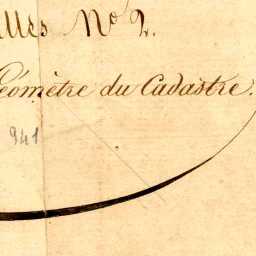 lles No 2.
Géomètre du Cadastre.
941